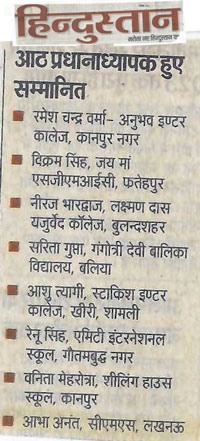 हिन्दुस्तान
आठ प्रधानाध्यापक हुए
सम्मानित
रमेश चन्द्र वर्मा– अनुभव इण्टर
कालेज, कानपुर नगर
विक्रम सिंह, जय मां
एसजीएमआईसी, फतेहपुर
नीरज भारद्वाज, लक्ष्मण दास
यजुर्वेद कॉलेज, बुलन्दशहर
सरिता गुप्ता, गंगोत्री देवी बालिका
विद्यालय, बलिया
आशु त्यागी, स्टाकिश इण्टर
कालेज, खीरी, शामली
रेनू सिंह, एमिटी इंटरनेशनल
स्कूल, गौतमबुद्ध नगर
वनिता मेहरोत्रा, शीलिंग हाउस
स्कूल, कानपुर
आभा अनंत, सीएमएस, लखनऊ